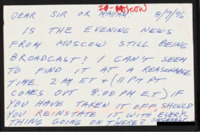 IA-MOSCOW
DEAR SIR OR MADAM, 8/7/96
IS THE EVENING NEWS
FROM MOSCOW STILL BEING
BROADCAST? I CAN'T SEEM
TO FIND IT AT A REASONABLE
TIME. 2 AM ET (11 PM PT
COMES OUT 8:00 PM ET) IF
YOU HAVE TAKEN IT OFF, SHOULD
YOU REINSTATE IT WITH EVERY-
THING GOING ON THERE?